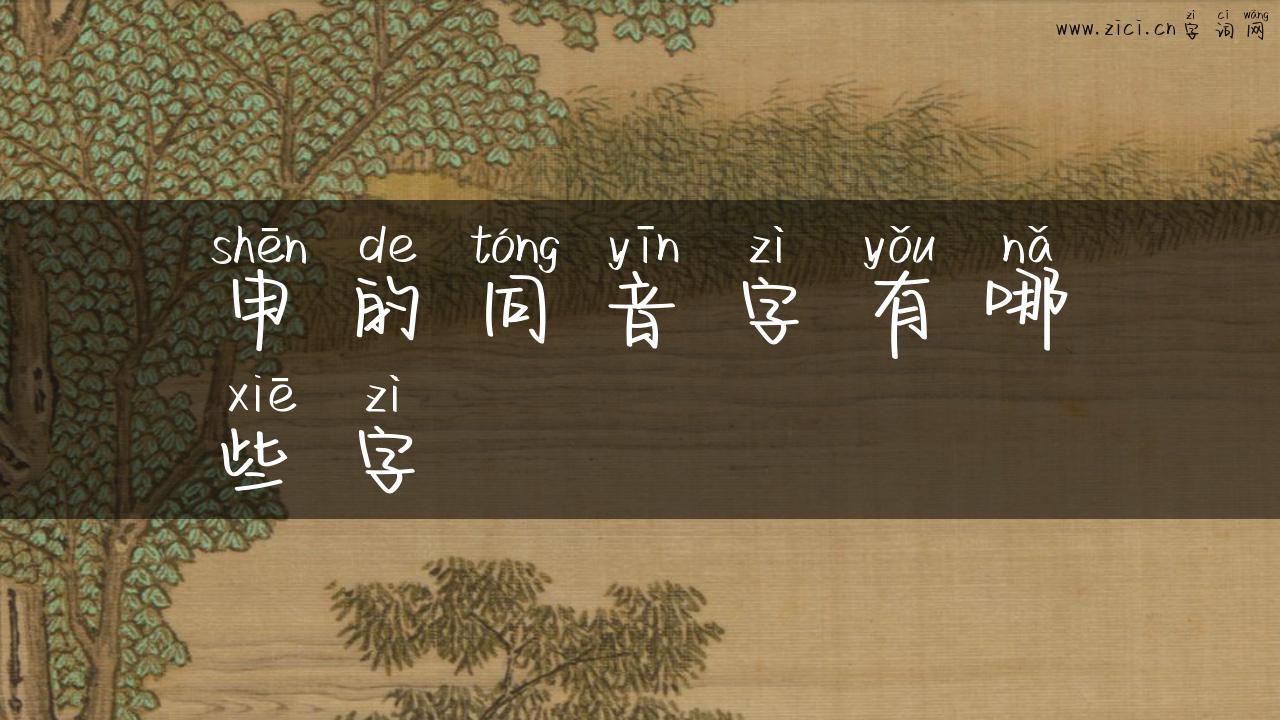 zì cí wǎng
www.zici.cn字词网
shēn de tóng yīn zì yǒu nǎ
申的同音字有哪
xiē zì
些字